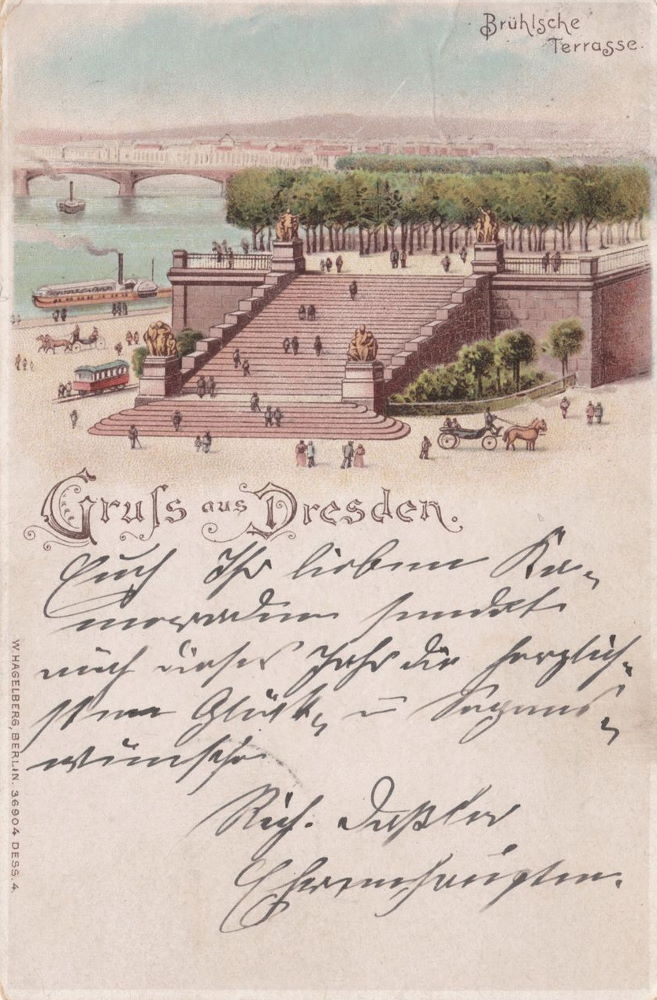 Brühlsche
Terrasse.
Gruss aus Dresden.
Euch Ihr lieben Ka-
meraden sendet
auch dieses Jahr die herzlich-
sten Glück- u Segens-
wünsche
Rich.
Ehrenhauptm.
W. HAGELBERG, BERLIN. 36904 DESS. 4.